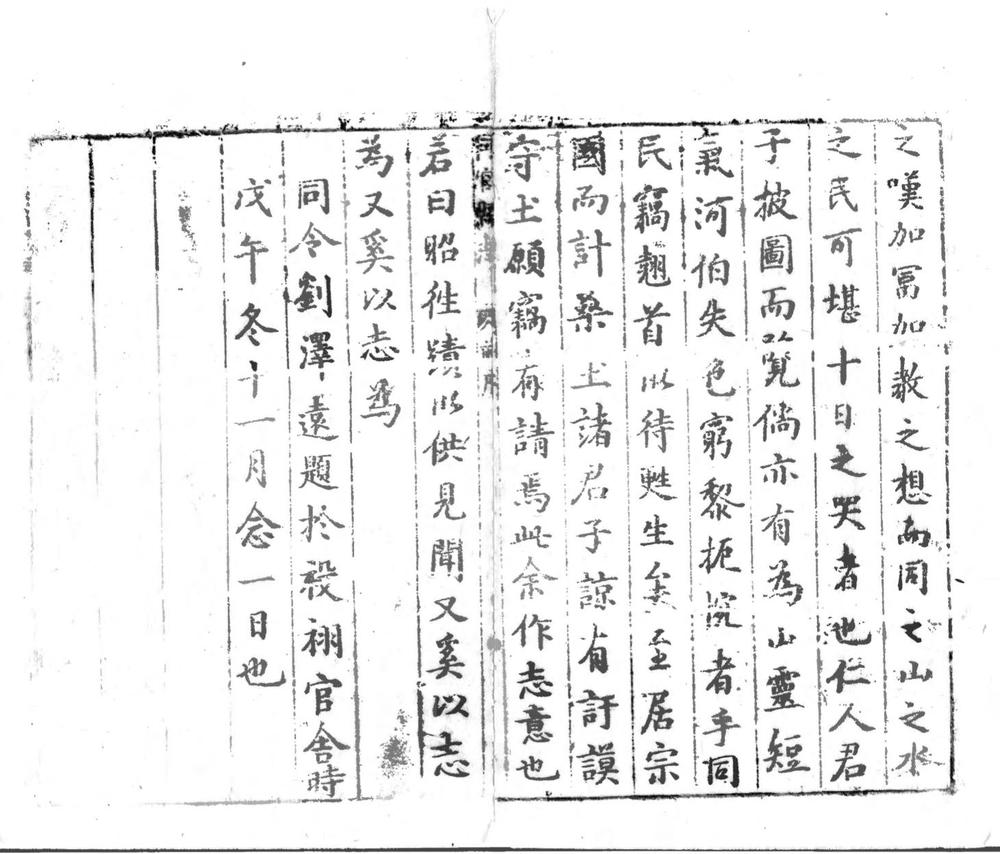 之嘆加富加教之想而同之山之水
之民可堪十日之哭者也仁人君
子披圖而覽倘亦有為山靈短
氣河伯失色窮黎扼腕者乎同
民竊翹首以待甦生矣至居宗
國而計桑土諸君子諒有訏謨
守土願竊有請焉此余作志意也
若曰昭徃蹟以供見聞又奚以志
為又奚以志為
同令劉澤遠題於祋祤官舍時
戊午冬十一月念一日也